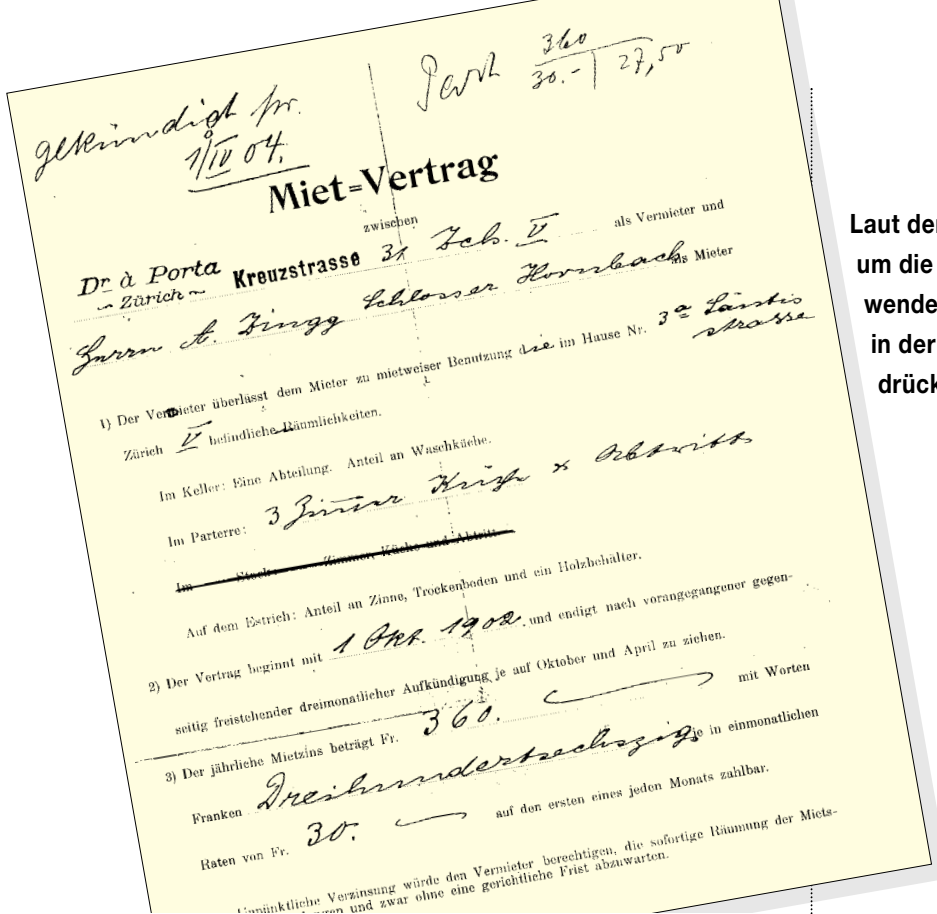 gekündigt pr.
1/IV 04.
Part 360
30.- | 27,50
Miet=Vertrag
zwischen
Dr. à Porta
Zürich
Kreuzstrasse 31 Zch. V als Vermieter und
Herrn A. Zingg Schlosser Hornbach als Mieter
1) Der Vermieter überlässt dem Mieter zu mietweiser Benutzung die im Hause Nr. 3a Säntis
strasse
Zürich V befindliche Räumlichkeiten.
Im Keller: Eine Abteilung. Anteil an Waschküche.
Im Parterre: 3 Zimmer Küche & Abtritt
Im Stock Zimmer, Küche und Abtritt
Auf dem Estrich: Anteil an Zinne, Trockenboden und ein Holzbehälter.
2) Der Vertrag beginnt mit 1 Okt. 1902 und endigt nach vorangegangener gegen-
seitig freistehender dreimonatlicher Aufkündigung je auf Oktober und April zu ziehen.
3) Der jährliche Mietzins beträgt Fr. 360. mit Worten
Franken Dreihundertsechszig je in einmonatlichen
Raten von Fr. 30. auf den ersten eines jeden Monats zahlbar.
Unpünktliche Verzinsung würde den Vermieter berechtigen, die sofortige Räumung der Miets-
und zwar ohne eine gerichtliche Frist abzuwarten.
Laut de
um die
wende
in der
drück